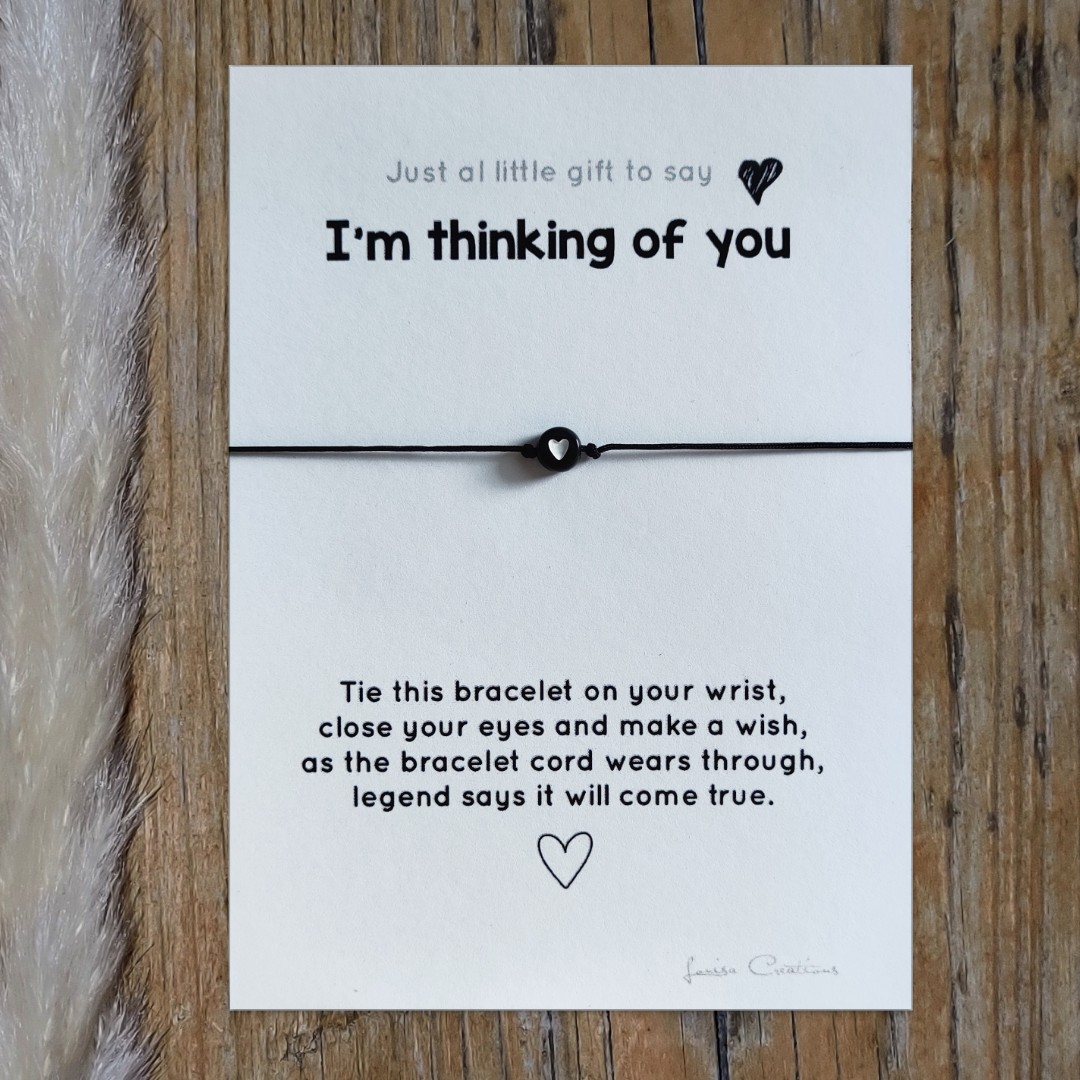 Just al little gift to say
I'm thinking of you
Tie this bracelet on your wrist,
close your eyes and make a wish,
as the bracelet cord wears through,
legend says it will come true.
Creations